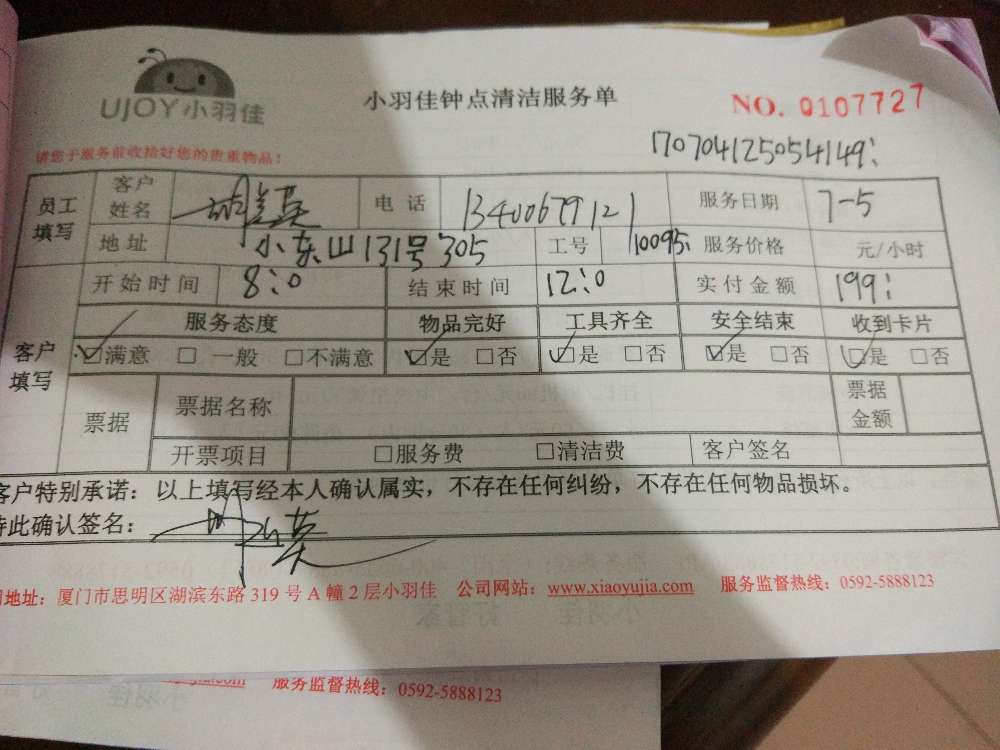 UJOY小羽佳
小羽佳钟点清洁服务单
NO. 0107727
请您于服务前收拾好您的贵重物品!
170704125054149:
员工填写 客户姓名 胡 英 电话 13400679121 服务日期 7-5
地址 小东山131号305 工号 10095 服务价格 元/小时
客户填写 开始时间 8:0 结束时间 12:0 实付金额 199:
服务态度 物品完好 工具齐全 安全结束 收到卡片
☑满意 □一般 □不满意 ☑是 □否 ☑是 □否 ☑是 □否 ☑是 □否
票据 票据名称 票据金额
开票项目 □服务费 □清洁费 客户签名
客户特别承诺：以上填写经本人确认属实，不存在任何纠纷，不存在任何物品损坏。
特此确认签名：胡 英
地址：厦门市思明区湖滨东路 319 号 A 幢 2 层小羽佳 公司网站：www.xiaoyujia.com 服务监督热线：0592-5888123
服务监督热线：0592-5888123